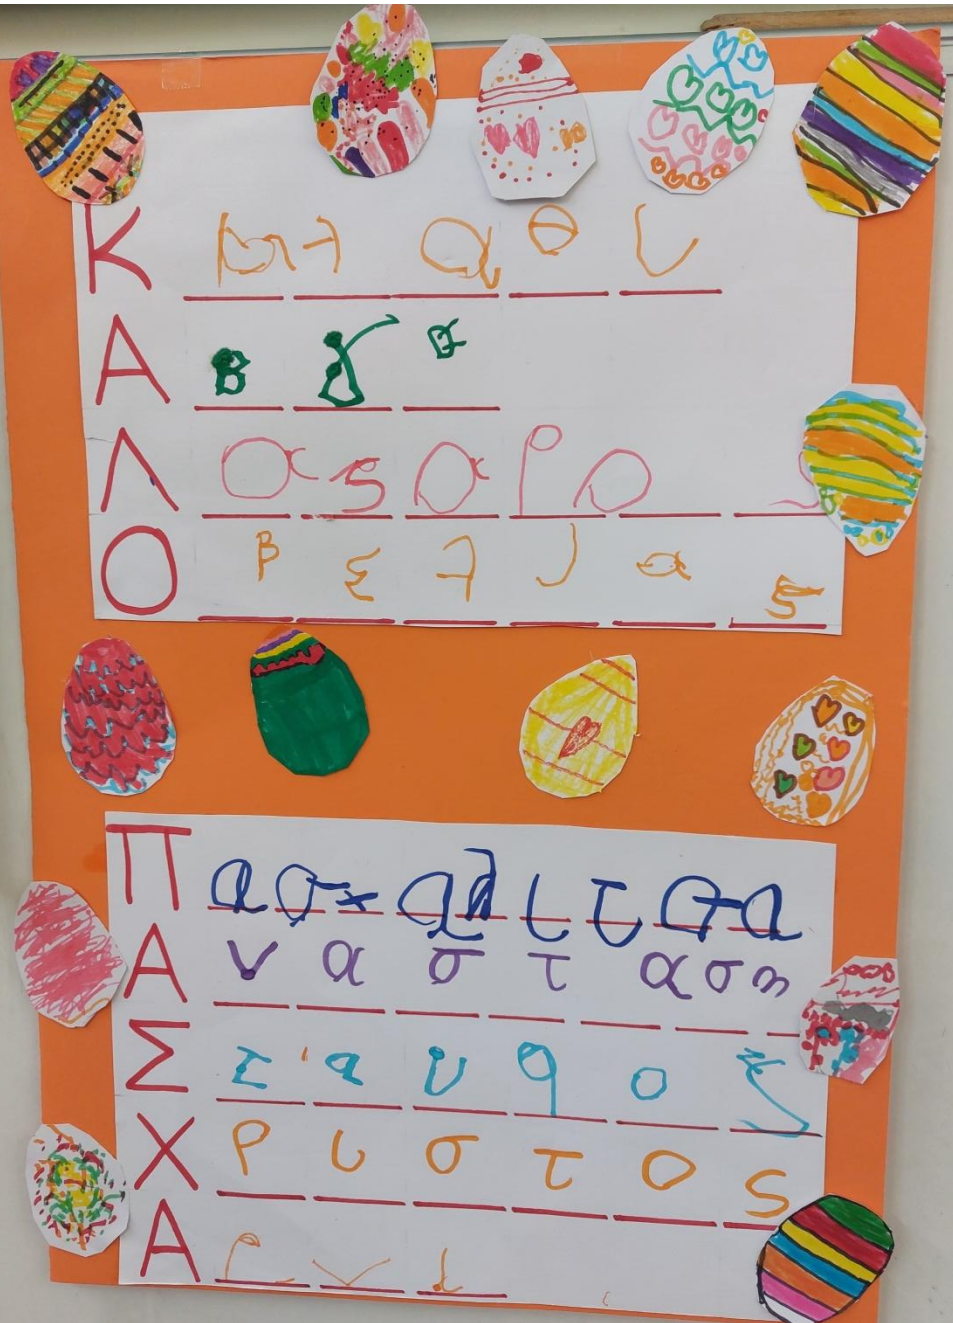 Καλαθι
Αβγο
Λαζαρος
Οβελιας
Πασχαλιτσα
Ανασταση
Σταυρος
Χριστος
Αρνι